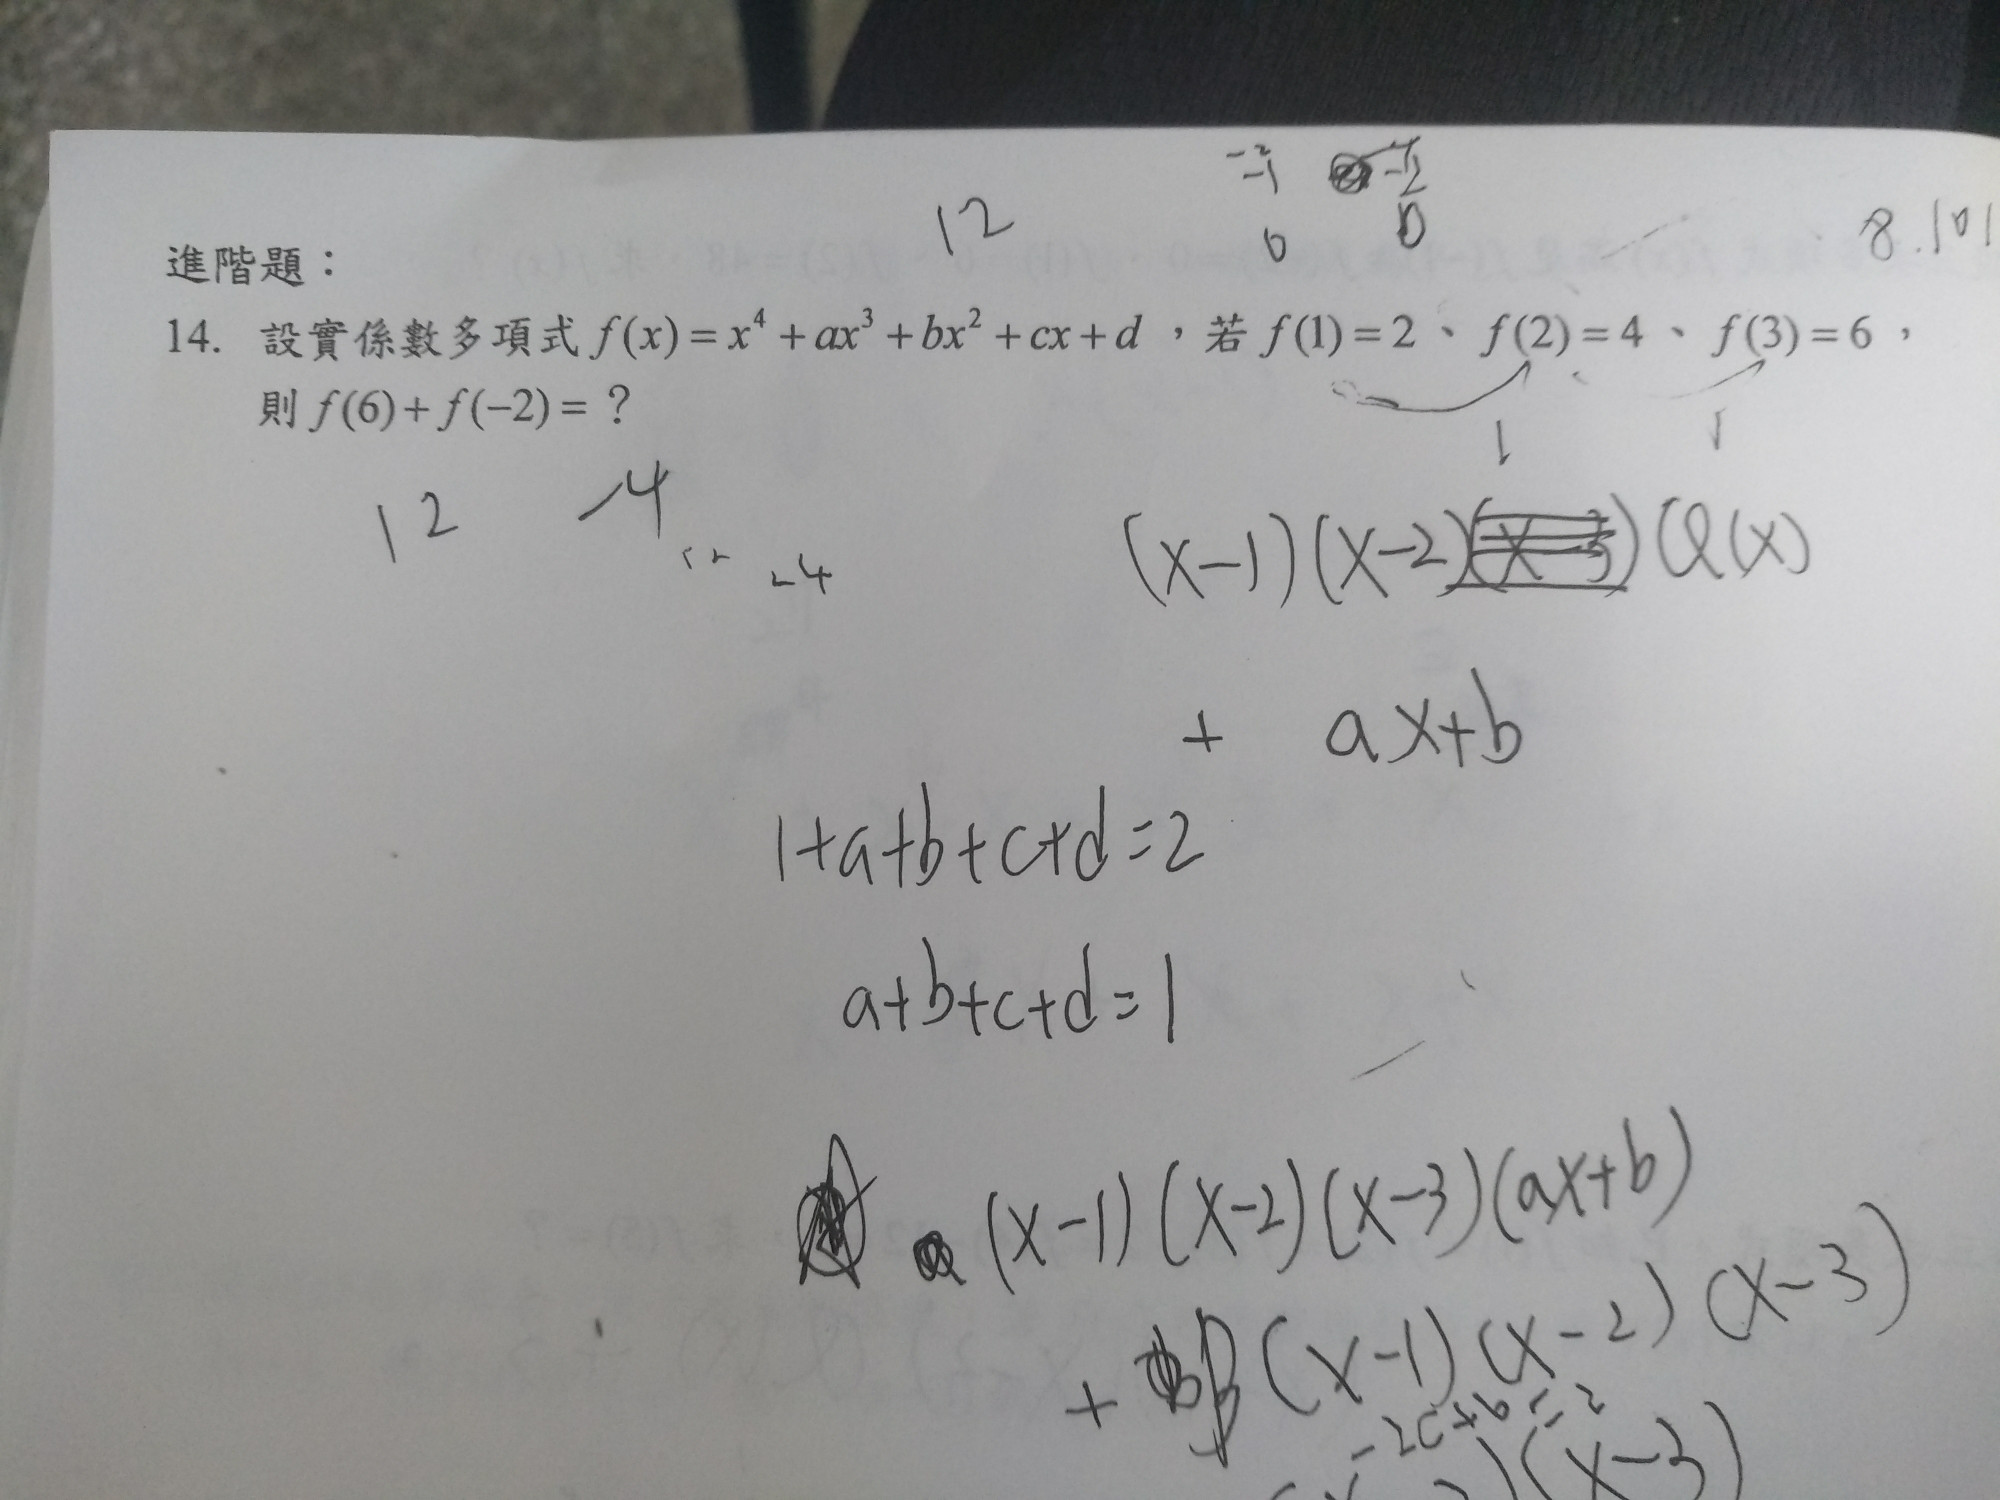 -2
-1 -2
12 6 0
8.101
進階題：
14. 設實係數多項式 f(x)=x⁴+ax³+bx²+cx+d，若 f(1)=2、f(2)=4、f(3)=6，
則 f(6)+f(-2)=？
12 -4
12 -4
(x-1)(x-2)(x-3)Q(x)
+ ax+b
1+a+b+c+d=2
a+b+c+d=1
(x-1)(x-2)(x-3)(ax+b)
+ (x-1)(x-2)(x-3)
-2c+b=2
(x-3)